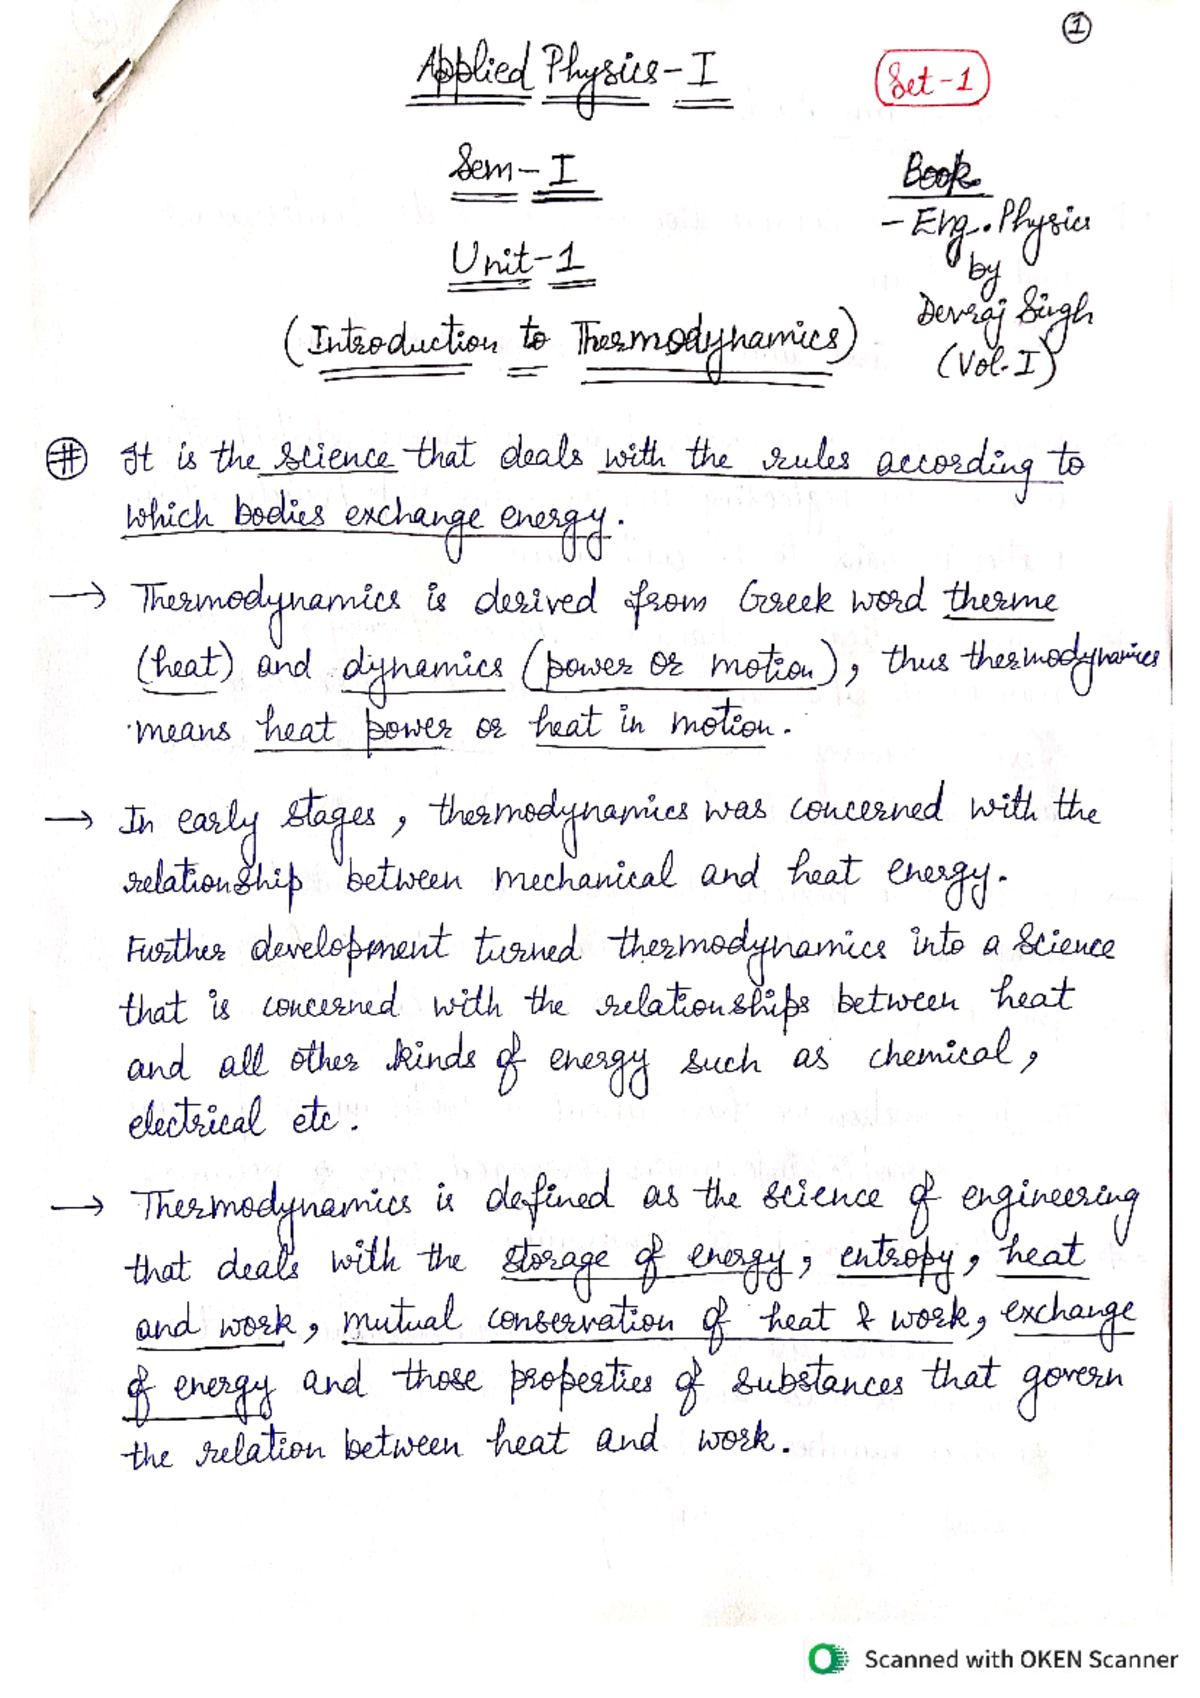 ①
Applied Physics-I
Set-1
Sem-I
Book
- Eng. Physics
by
Devraj Singh
(Vol. I)
Unit-1
(Introduction to Thermodynamics)
# It is the science that deals with the rules according to
which bodies exchange energy.
→ Thermodynamics is derived from Greek word therme
(heat) and dynamics (power or motion), thus thermodynamics
means heat power or heat in motion.
→ In early stages, thermodynamics was concerned with the
relationship between mechanical and heat energy.
Further development turned thermodynamics into a science
that is concerned with the relationships between heat
and all other kinds of energy such as chemical,
electrical etc.
→ Thermodynamics is defined as the science of engineering
that deals with the storage of energy, entropy, heat
and work, mutual conservation of heat & work, exchange
of energy and those properties of substances that govern
the relation between heat and work.
Scanned with OKEN Scanner